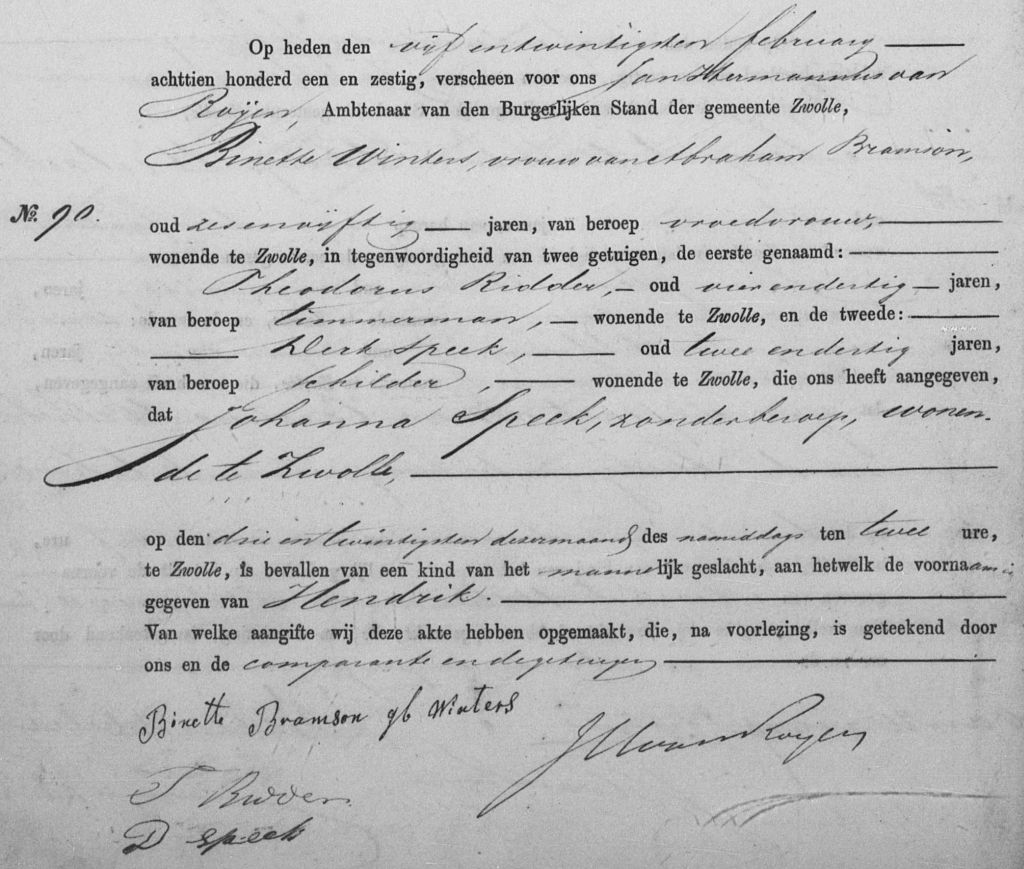 Op heden den vijf entwintigsten february
achttien honderd een en zestig, verscheen voor ons Jan Hermannus van
Roijen, Ambtenaar van den Burgerlijken Stand der gemeente Zwolle,
Binette Winters, vrouw van Abraham Bramson,
No. 90. oud zesenvijftig jaren, van beroep vroedvrouw,
wonende te Zwolle, in tegenwoordigheid van twee getuigen, de eerste genaamd:
Theodorus Ridder, oud vier endertig jaren,
van beroep timmerman, wonende te Zwolle, en de tweede:
Derk Speek, oud twee endertig jaren,
van beroep schilder, wonende te Zwolle, die ons heeft aangegeven,
dat Johanna Speek, zonder beroep, wonen-
de te Zwolle,
op den drie en twintigsten dezer maand des namiddags ten twee ure,
te Zwolle, is bevallen van een kind van het mannelijk geslacht, aan hetwelk de voornaam is
gegeven van Hendrik.
Van welke aangifte wij deze akte hebben opgemaakt, die, na voorlezing, is geteekend door
ons en de comparante en de getuigen
Binette Bramson gb Winters
JHvan Royen
T Ridder
D Speek